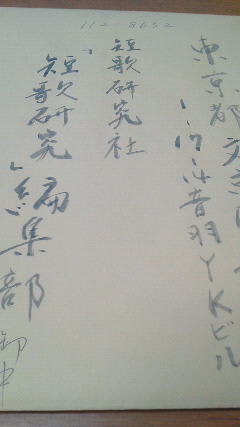 112 8652
東京都文京区
1-17-14音羽YKビル
短歌研究社
「短歌研究」編集部
御中